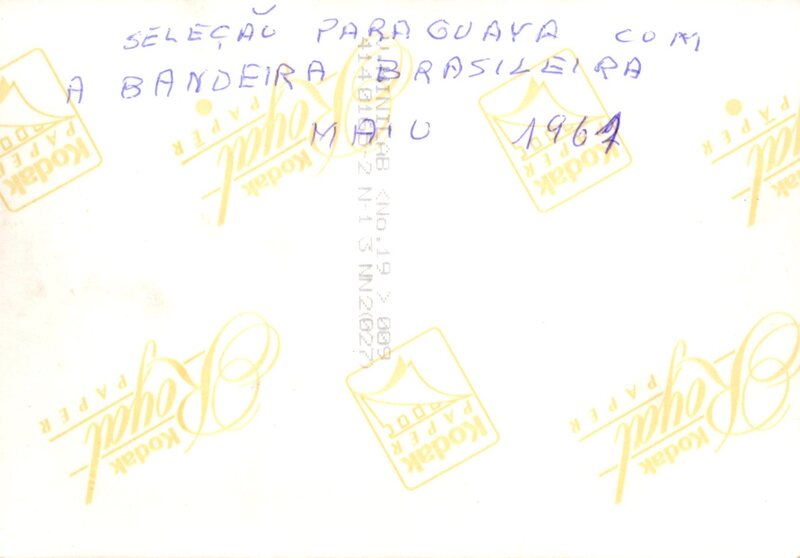 SELEÇÃO PARAGUAYA COM
A BANDEIRA BRASILEIRA
MAIO 1961
Kodak
PAPER
Kodak
Royal
PAPER
Kodak
PAPER
Kodak
Royal
PAPER
<No.19 > 009
2 N-1 3 NN2(027)
Kodak
Royal
PAPER
Kodak
PAPER
Kodak
Royal
PAPER